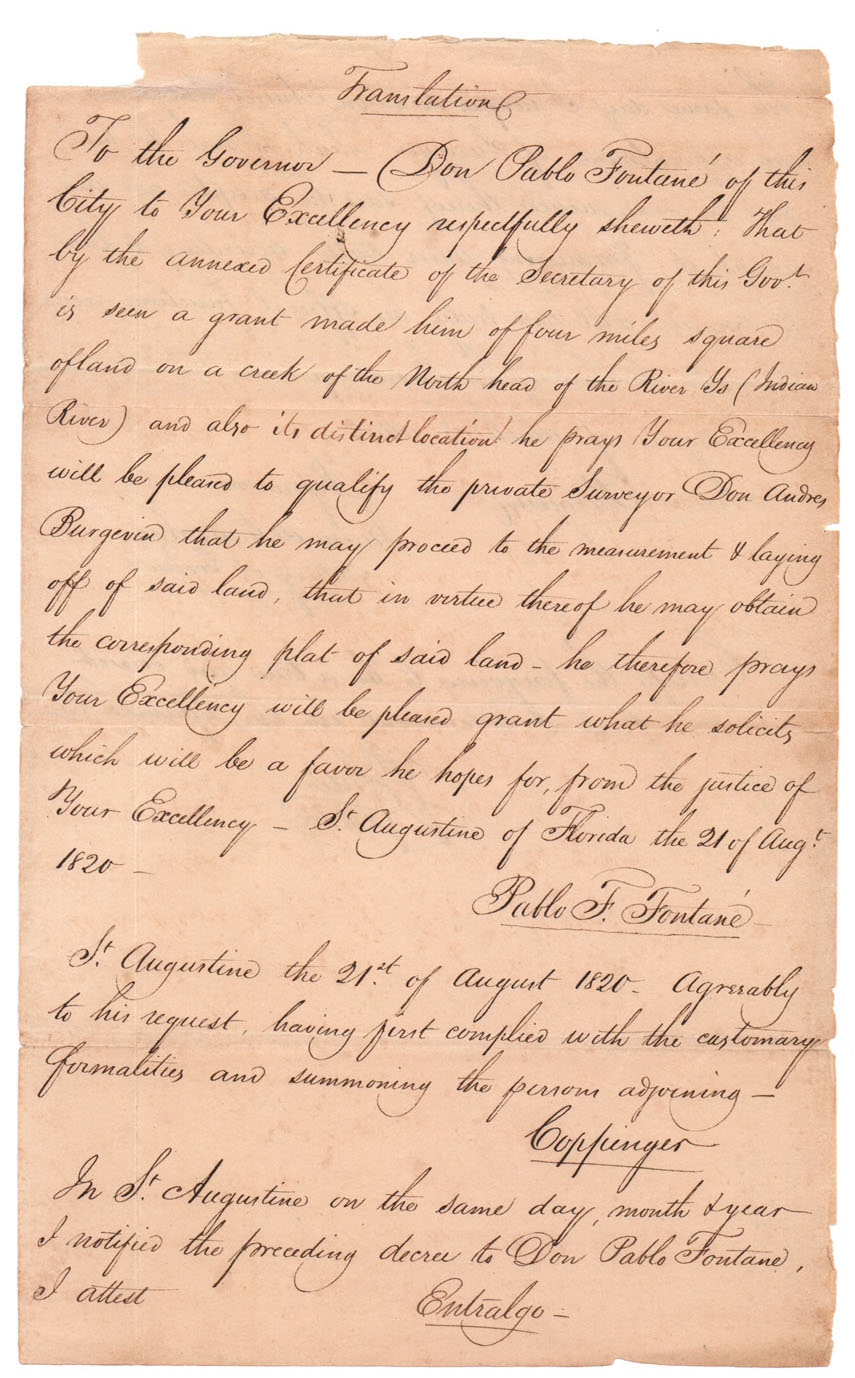 Translation
To the Governor — Don Pablo Fontané of this
City to Your Excellency respectfully sheweth: That
by the annexed Certificate of the Secretary of this Govt.
is seen a grant made him of four miles square
of land on a creek of the North head of the River Ys (Indian
River) and also its distinct location: he prays Your Excellency
will be pleased to qualify the private Surveyor Don Andres
Burgevin that he may proceed to the measurement & laying
off of said land, that in virtue thereof he may obtain
the corresponding plat of said land – he therefore prays
Your Excellency will be pleased grant what he solicits,
which will be a favor he hopes for, from the justice of
Your Excellency – St. Augustine of Florida the 21 of Augt.
1820 –
Pablo F. Fontané
St. Augustine the 21st. of August 1820 – Agreeably
to his request, having first complied with the customary
formalities and summoning the persons adjoining —
Coppinger
In St. Augustine on the same day, month & year
I notified the preceding decree to Don Pablo Fontane,
I attest Entralgo –